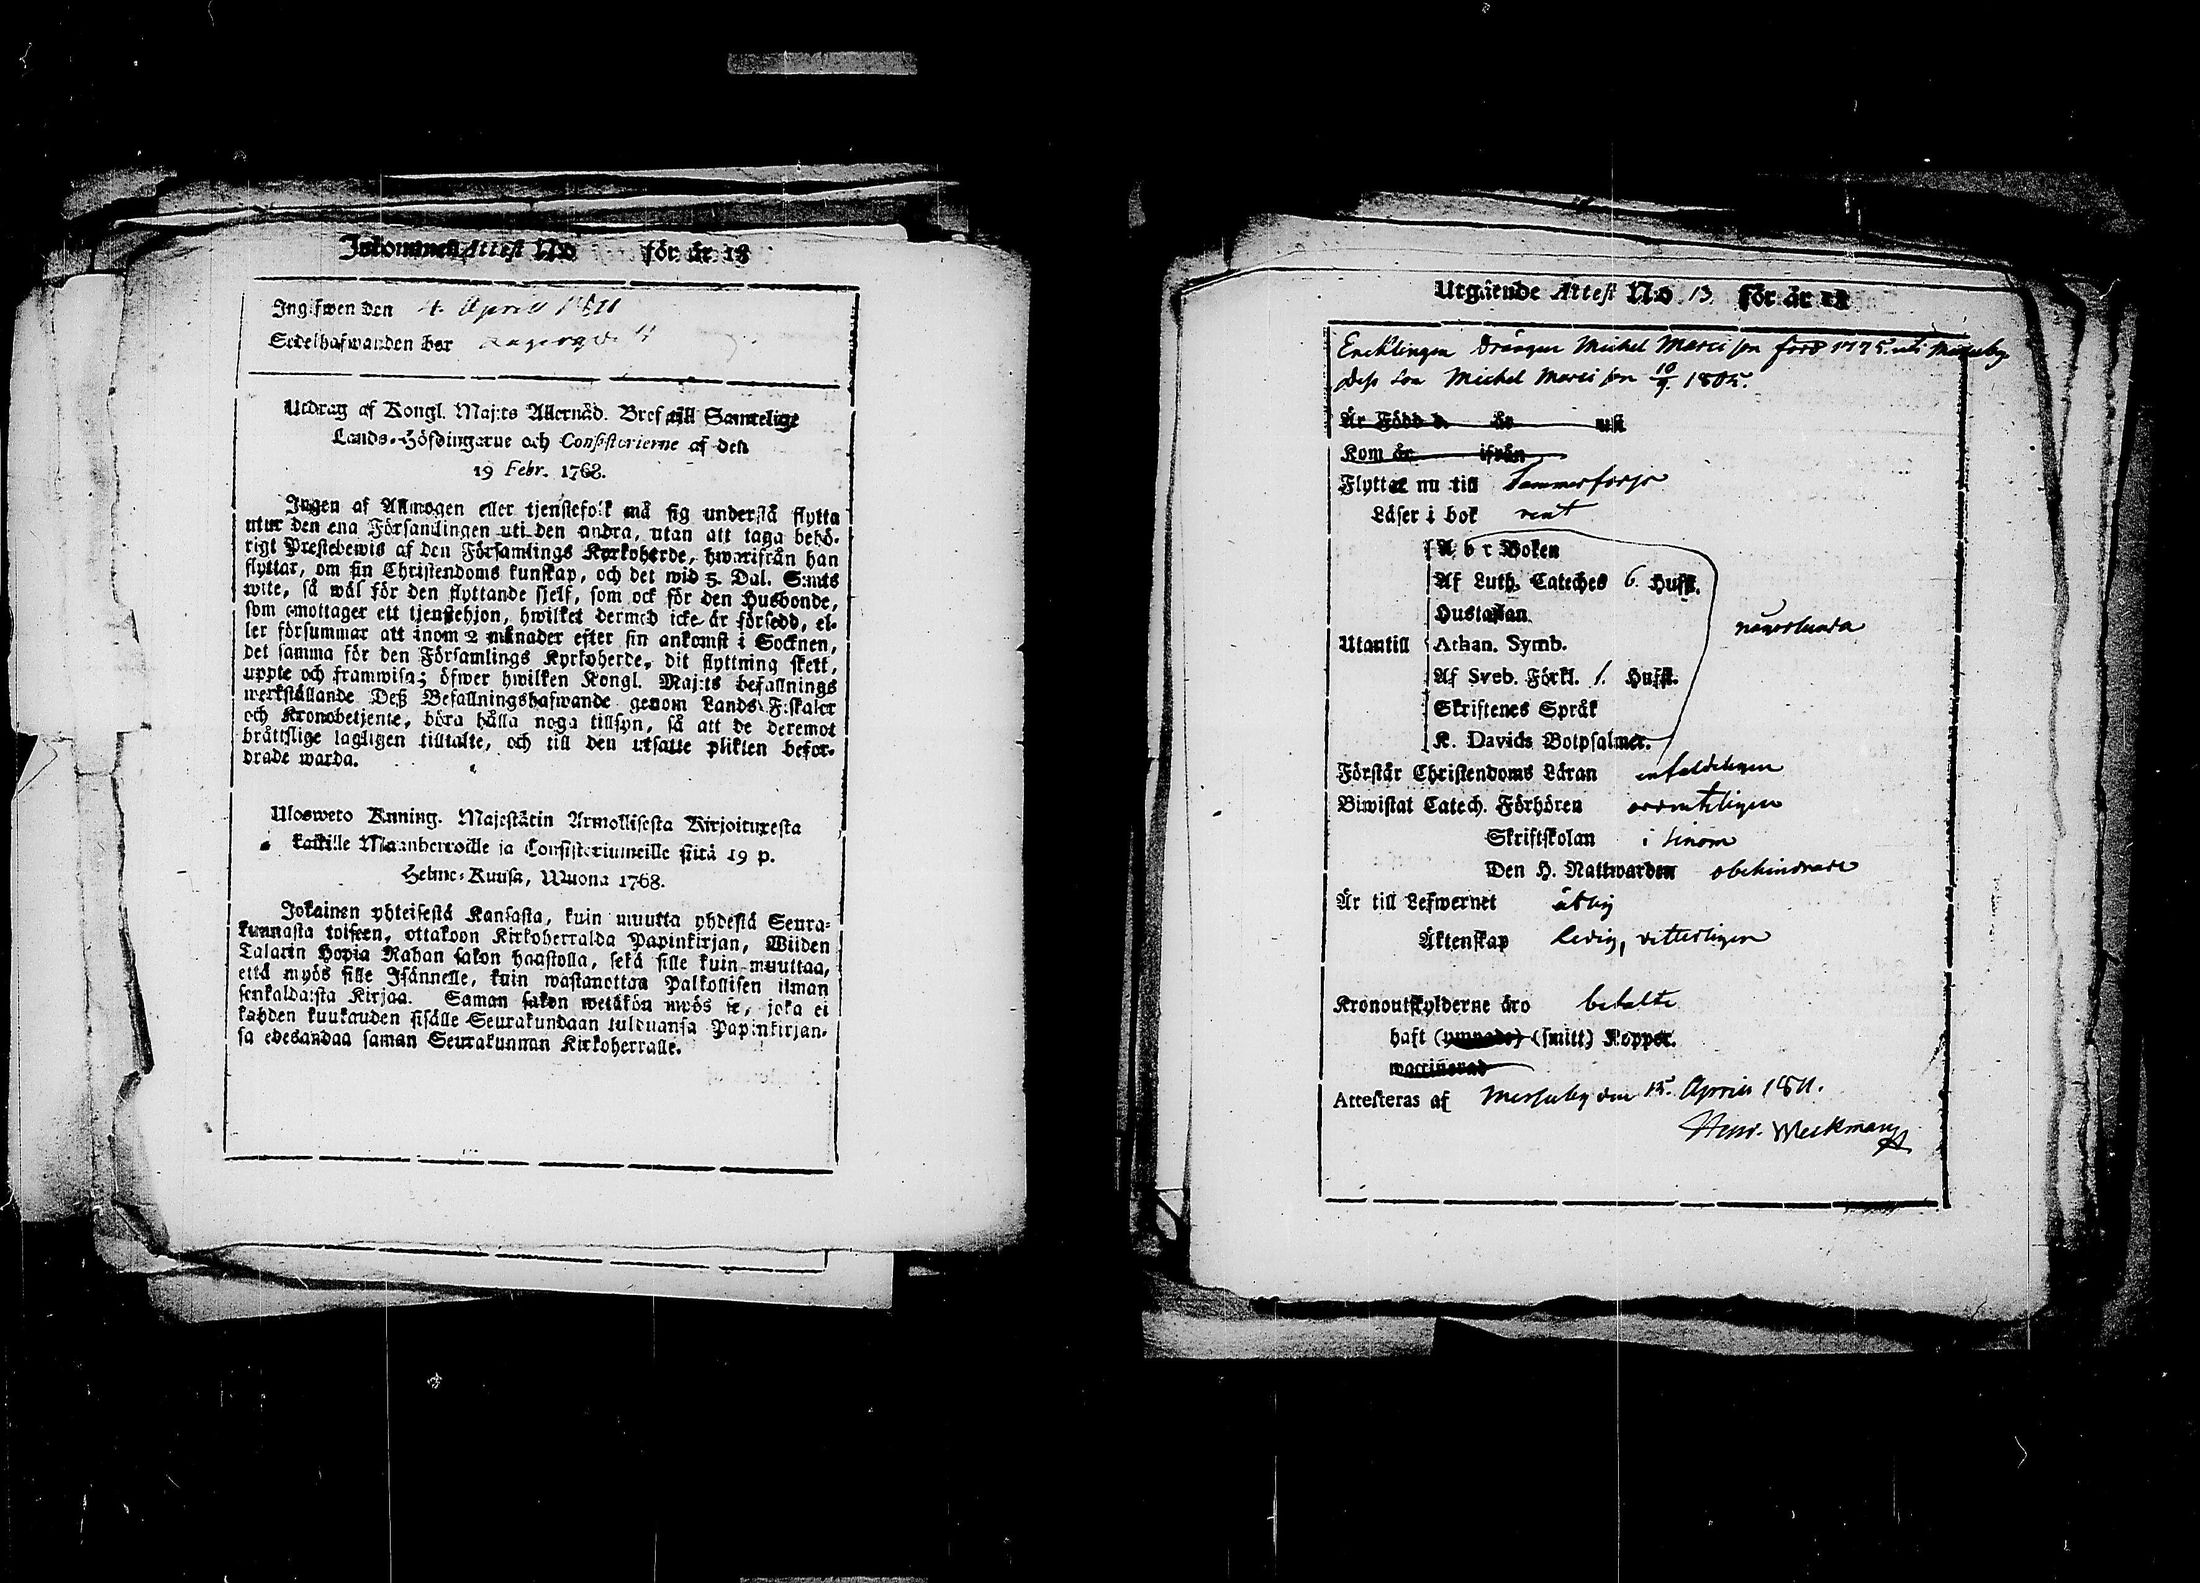 Inkommen Attest N:o för år 18
Ingifwen den 4. April 1811
Sedelhafwanden bor
Utdrag af Kongl. Maj:ts Allernåd. Bref till Samtelige
Lands-Höfdingarne och Consistorierne af den
19 Febr. 1768.
Ingen af Allmogen eller tjenstefolk må sig understå flytta
utur den ena Församlingen uti den andra, utan att taga behö-
rigt Prestebewis af den Församlings Kyrkoherde, hwarifrån han
flyttar, om sin Christendoms kunskap, och det wid 5. Dal. S:mts
wite, så wäl för den flyttande sjelf, som ock för den Husbonde,
som emottager ett tjenstehjon, hwilket dermed icke är försedd, el-
ler försummar att inom 2 månader efter sin ankomst i Socknen,
det samma för den Församlings Kyrkoherde, dit flyttning skett,
uppte och framwisa; öfwer hwilken Kongl. Maj:ts befallnings
werkställande Deß Befallningshafwande genom Lands-Fiskaler
och Kronobetjente, böra hålla noga tillsyn, så att de deremot
bråttslige lagligen tilltalte, och till den utsatte plikten befor-
drade warda.
Ulosweto Kuning. Majestätin Armollisesta Kirjoituxesta
kaikille Maanherroille ja Consistoriumeille siitä 19 p.
Helme-Kuusa, Wuona 1768.
Jokainen yhteisestä Kansasta, kuin muutta yhdestä Seura-
kunnasta toiseen, ottakoon Kirkoherralda Papinkirjan, Wiiden
Talarin Hopia Rahan sakon haastolla, sekä sille kuin muuttaa,
että myös sille Isännelle, kuin wastanottaa Palkollisen ilman
senkaldaista Kirjaa. Saman sakon wetäkön myös se, joka ei
kahden kuukauden sisälle Seurakundaan tuleuansa Papinkirjan-
sa edesandaa saman Seurakunnan Kirkoherralle.
Utgående Attest N:o 13. för år 18
Enklingen Drängen Michel Marci son född 1775. uti
Dess Son Michel Marci son 10/9 1805.
Är Född d. år uti
Kom år ifrån
Flyttar nu till Tammerfors
Läser i bok rent
A b c Boken
Af Luth. Cateches 6. Hufst.
Hustaflan
Utantill Athan. Symb.
Af Sveb. Förkl. 1. Hufst.
Skriftenes Språk
K. Davids Botpsalmer.
någorlunda
Förstår Christendoms Läran enfaldeligen
Biwistat Catech. Förhören ordenteligen
Skriftskolan i
Den H. Nattwarden obehindrade
Är till Lefwernet
Äktenskap ledig, vitterligen
Kronoutskylderne äro betalte
haft (ympade) (smitt) Koppor.
waccinerad
Attesteras af den 15. Aprilis 1811.
Henr.